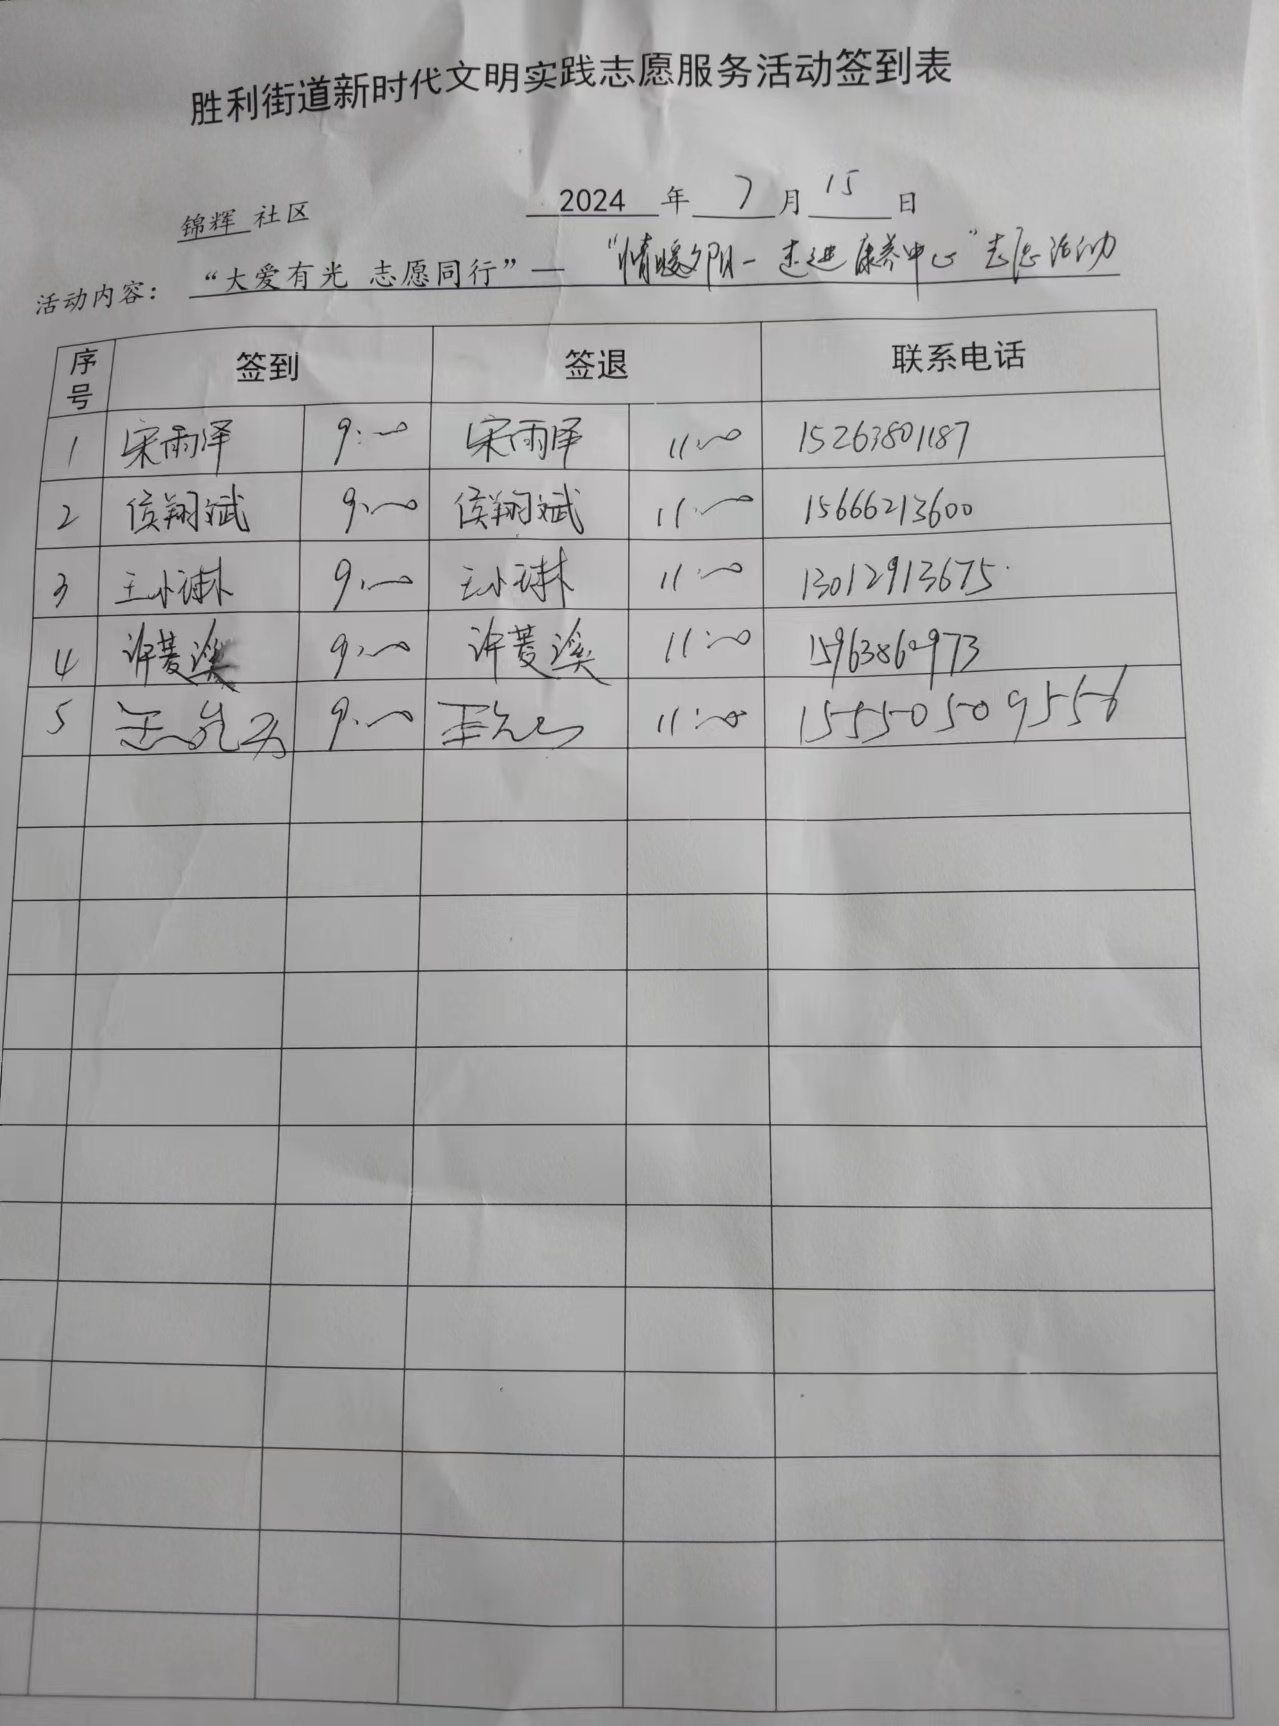 胜利街道新时代文明实践志愿服务活动签到表
锦辉 社区 2024 年 7 月 15 日
活动内容： “大爱有光 志愿同行”— “情暖夕阳—走进康养中心”志愿活动
序号 签到 签退 联系电话
1 宋雨泽 9:00 宋雨泽 11:00 15263801187
2 侯翔斌 9:00 侯翔斌 11:00 15666213600
3 王小琳 9:00 王小琳 11:00 13012913675
4 许菱溪 9:00 许菱溪 11:00 15963860973
5 9:00 11:00 15550509556